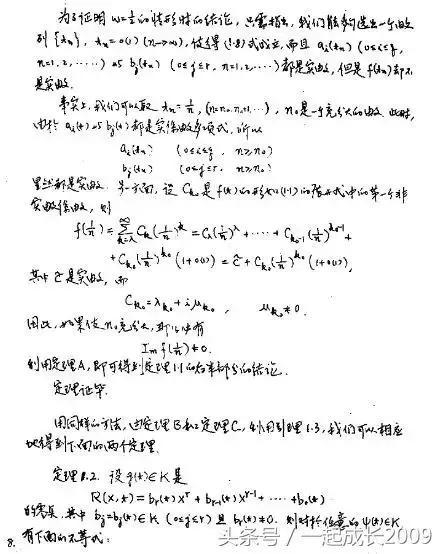 为了证明 ω=1/2 的情形时的结论，只需指出，我们能够选出一个数
列 {x_n}，x_n=o(1) (n→∞)，使得 (1.8) 式成立，而且 a_i(x_n) (0≤i≤q,
n=1,2,……) 与 b_j(x) (0≤j≤r, n=1,2,……) 都是实数，但是 f(x_n) 却不
是实数.
事实上，我们可以取 x_n=1/n, (n=n₀,n₀+1,…)，n₀是一个充分大的数. 此时，
由于 a_i(x) 与 b_j(x) 都是实系数多项式，所以
a_i(x_n) (0≤i≤q, n≥n₀)
b_j(x_n) (0≤j≤r, n≥n₀)
显然都是实数. 另一方面，设 C_k₀ 是 f(x) 的形如(1.1)的展开式中的第一个非
实数系数，则
f(1/n)=∑_{k=λ}^∞ C_k(1/n)^k = C_λ(1/n)^λ+⋯+C_{k₀-1}(1/n)^{k₀-1}+
+C_{k₀}(1/n)^{k₀}(1+o(1)) = c̃+C_{k₀}(1/n)^{k₀}(1+o(1)),
其中 c̃ 是实数，而
C_{k₀}=λ_{k₀}+iμ_{k₀}, μ_{k₀}≠0.
因此，如果使 n₀ 充分大，那么必有
Im f(1/n)≠0.
利用定理A，即可得到定理1.1的后半部分的结论.
定理证毕.
用同样的方法，由定理B和定理C，利用引理1.3，我们可以相应
地得到下面的两个定理.
定理1.2. 设 g(x)∈K 是
R(X,x)=b_r(x)X^r+b_{r-1}(x)X^{r-1}+⋯+b₀(x)
的零点，其中 b_j=b_j(x)∈K (0≤j≤r) 且 b_r(x)≠0. 则对于任意的 ψ(x)∈K
有下面的不等式：
8.
头条号 / 一起成长2009